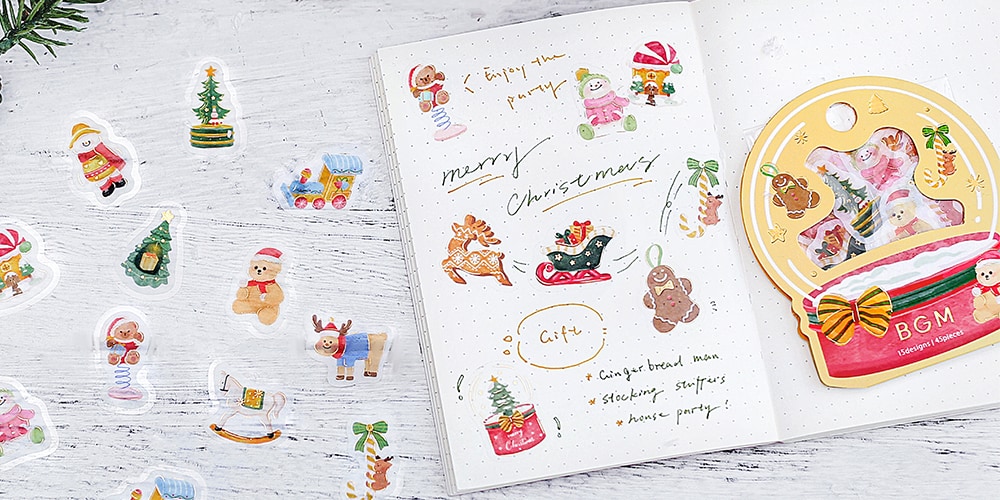 Enjoy the
party
merry
Christmas
Gift
* Ginger bread man.
* stocking stuffers
* house party!
merry
Christmas
BGM
15designs | 45pieces